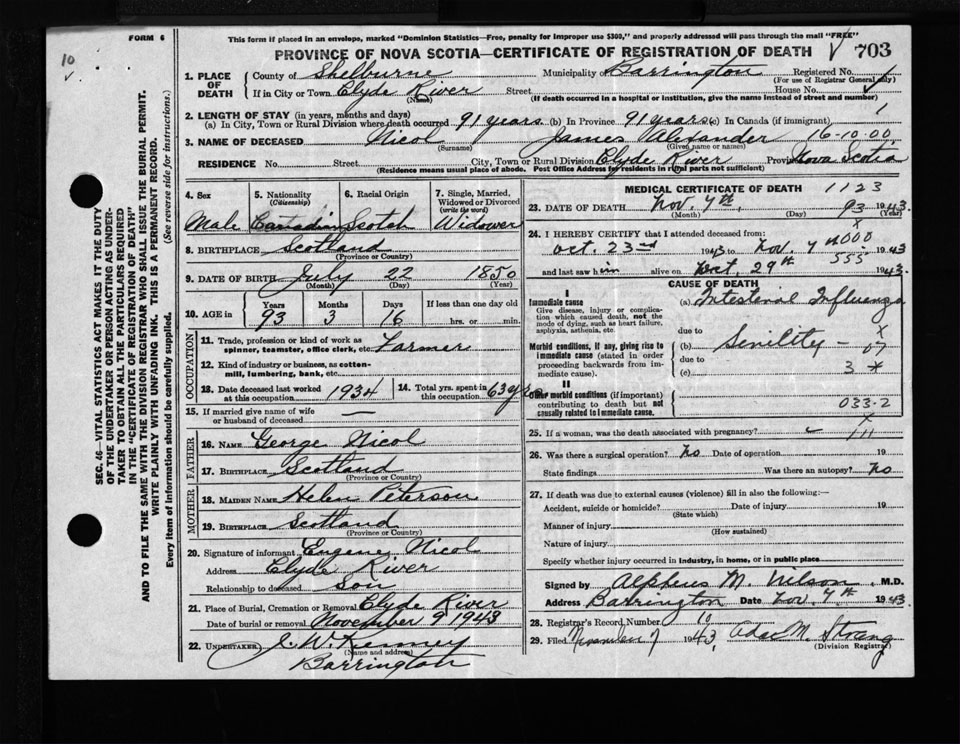 FORM 6
This form if placed in an envelope, marked "Dominion Statistics—Free, penalty for improper use $300," and properly addressed will pass through the mail "FREE"
10
PROVINCE OF NOVA SCOTIA—CERTIFICATE OF REGISTRATION OF DEATH 703
1. PLACE OF DEATH
County of Shelburne Municipality Barrington Registered No. 1
(For use of Registrar General only)
If in City or Town Clyde River Street House No.
(Name) (If death occurred in a hospital or institution, give the name instead of street and number)
2. LENGTH OF STAY (in years, months and days)
(a) In City, Town or Rural Division where death occurred 91 years (b) In Province 91 years (c) In Canada (if immigrant) 1
3. NAME OF DECEASED Nicol James Alexander 16-10-00
(Surname) (Given name or names)
RESIDENCE No. Street. City, Town or Rural Division Clyde River Province Nova Scotia
(Residence means usual place of abode. Post Office Address for residents in rural parts not sufficient)
4. Sex Male
5. Nationality (Citizenship) Canadian
6. Racial Origin Scotch
7. Single, Married, Widowed or Divorced (write the word) Widower
8. BIRTHPLACE Scotland
(Province or Country)
9. DATE OF BIRTH July 22 1850
(Month) (Day) (Year)
10. AGE in Years 93 Months 3 Days 16 If less than one day old hrs. or min.
OCCUPATION
11. Trade, profession or kind of work as spinner, teamster, office clerk, etc. Farmer
12. Kind of industry or business, as cotton-mill, lumbering, bank, etc.
13. Date deceased last worked at this occupation 1934
14. Total yrs. spent in this occupation 63 yrs
15. If married give name of wife or husband of deceased —
FATHER
16. NAME George Nicol
17. BIRTHPLACE Scotland
(Province or Country)
MOTHER
18. MAIDEN NAME Helen Peterson
19. BIRTHPLACE Scotland
(Province or Country)
20. Signature of informant Eugene Nicol
Address Clyde River
Relationship to deceased Son
21. Place of Burial, Cremation or Removal Clyde River
Date of burial or removal November 9 1943
22. UNDERTAKER
(Name and address)
Barrington
MEDICAL CERTIFICATE OF DEATH 1123
23. DATE OF DEATH Nov. 7th, 93 1943
(Month) (Day)
24. I HEREBY CERTIFY that I attended deceased from:
Oct. 23rd 1943 to Nov. 7 1943
555
and last saw him alive on Oct. 29th 1943.
CAUSE OF DEATH
I
Immediate cause
Give disease, injury or complication which caused death, not the mode of dying, such as heart failure, asphyxia, asthenia, etc.
(a) Intestinal Influenza
due to
Morbid conditions, if any, giving rise to immediate cause (stated in order proceeding backwards from immediate cause).
(b) Senility —
due to
(c) 3
II
Other morbid conditions (if important) contributing to death but not causally related to immediate cause.
033.2
25. If a woman, was the death associated with pregnancy?
26. Was there a surgical operation? No Date of operation 19
State findings Was there an autopsy? No
27. If death was due to external causes (violence) fill in also the following:—
Accident, suicide or homicide? Date of injury 19
(State which)
Manner of injury
(How sustained)
Nature of injury
Specify whether injury occurred in industry, in home, or in public place
Signed by Alpheus M. Wilson, M.D.
Address Barrington Date Nov. 7th 1943.
28. Registrar's Record Number 10
29. Filed November 7 1943, Ada M. Strang
(Division Registrar)
SEC. 46—VITAL STATISTICS ACT MAKES IT THE DUTY
OF THE UNDERTAKER OR PERSON ACTING AS UNDER-
TAKER TO OBTAIN ALL THE PARTICULARS REQUIRED
IN THE "CERTIFICATE OF REGISTRATION OF DEATH"
AND TO FILE THE SAME WITH THE DIVISION REGISTRAR WHO SHALL ISSUE THE BURIAL PERMIT.
WRITE PLAINLY WITH UNFADING INK. THIS IS A PERMANENT RECORD.
Every item of information should be carefully supplied. (See reverse side for instructions.)